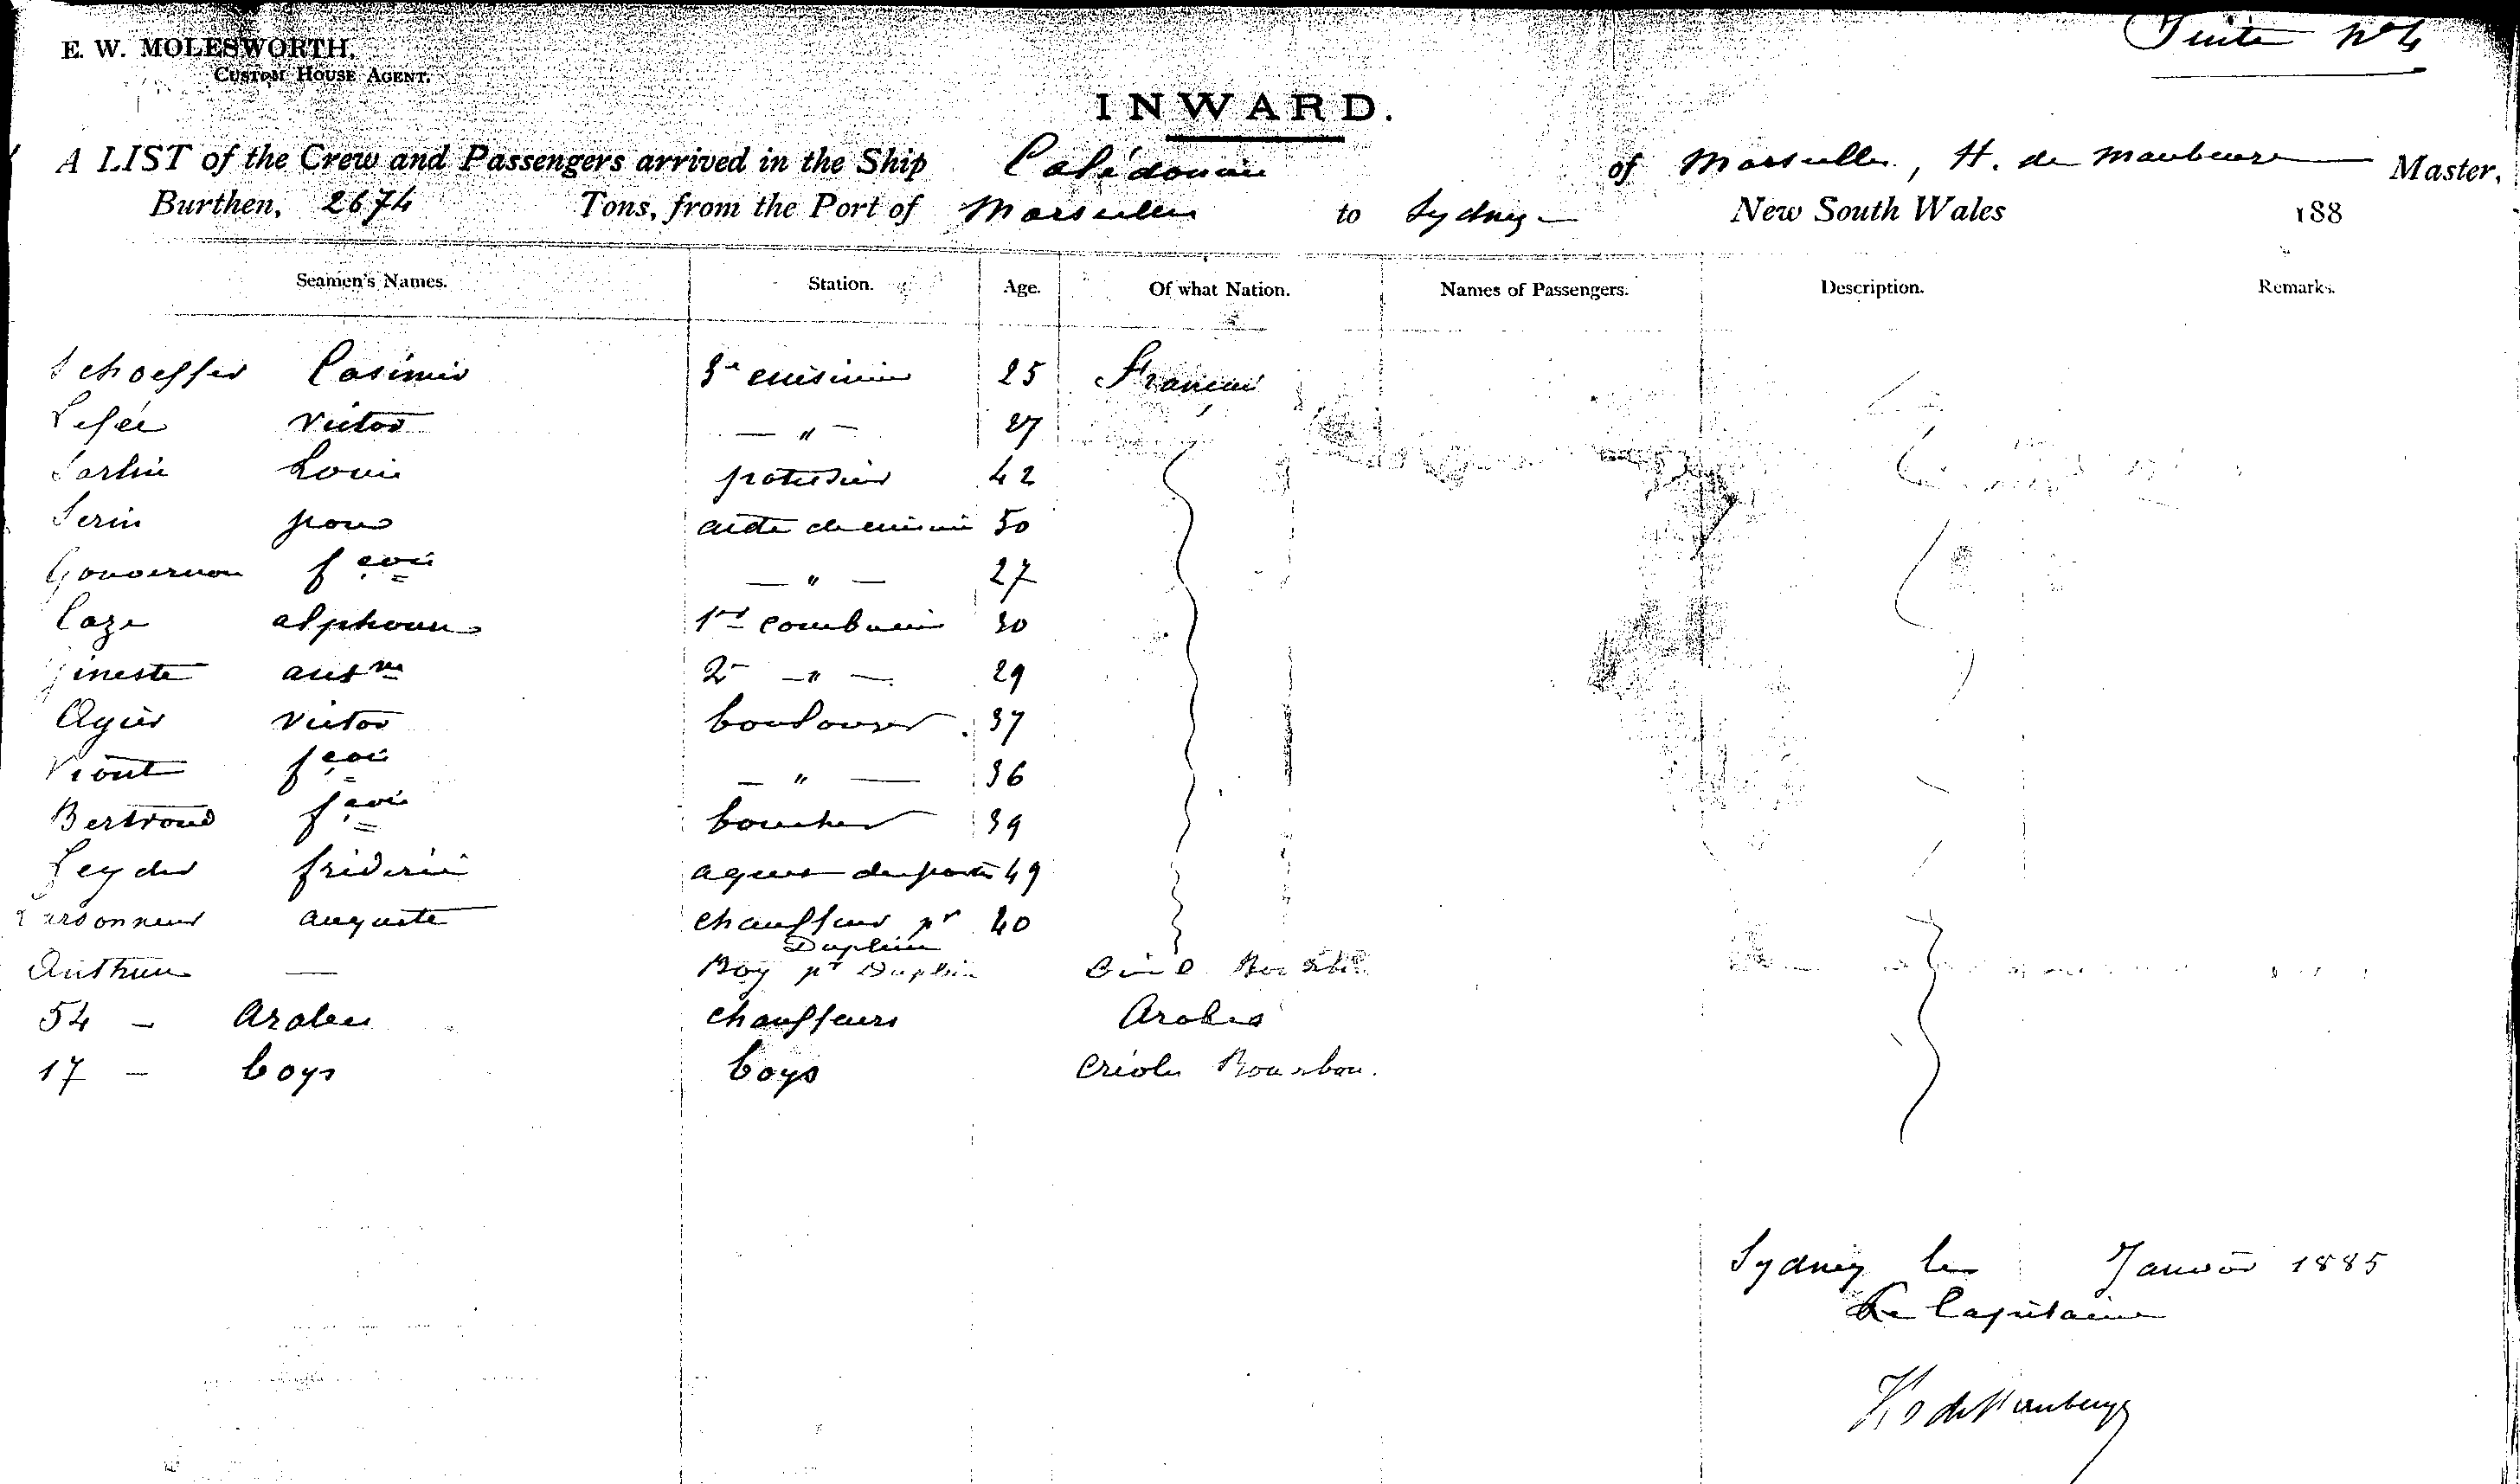 E. W. MOLESWORTH,
CUSTOM HOUSE AGENT.
Suite No 4
INWARD.
A LIST of the Crew and Passengers arrived in the Ship Calédonien of Marseille, H. de Maubeuge Master,
Burthen, 2674 Tons, from the Port of Marseille to Sydney New South Wales 188
Seamen's Names. Station. Age. Of what Nation. Names of Passengers. Description. Remarks.
Schoeffer Casimir 3e cuisinier 25 Français
Victor — " — 27
Louis 42
Serin 50
Gouvernon fçois — " — 27
Caze alphonse 30
Gineste 2e — " — 29
Agier Victor boulanger 37
Viout fçois — " — 36
Bertrand fçois boucher 39
Leyder fréderic 49
auguste chauffeur pr 40
Duplein
— Boy pr Duplein
54 — Arabes chauffeurs Arabes
17 — boys boys Créoles Bourbon.
Sydney le Janvier 1885
Le Capitaine
H de Maubeuge